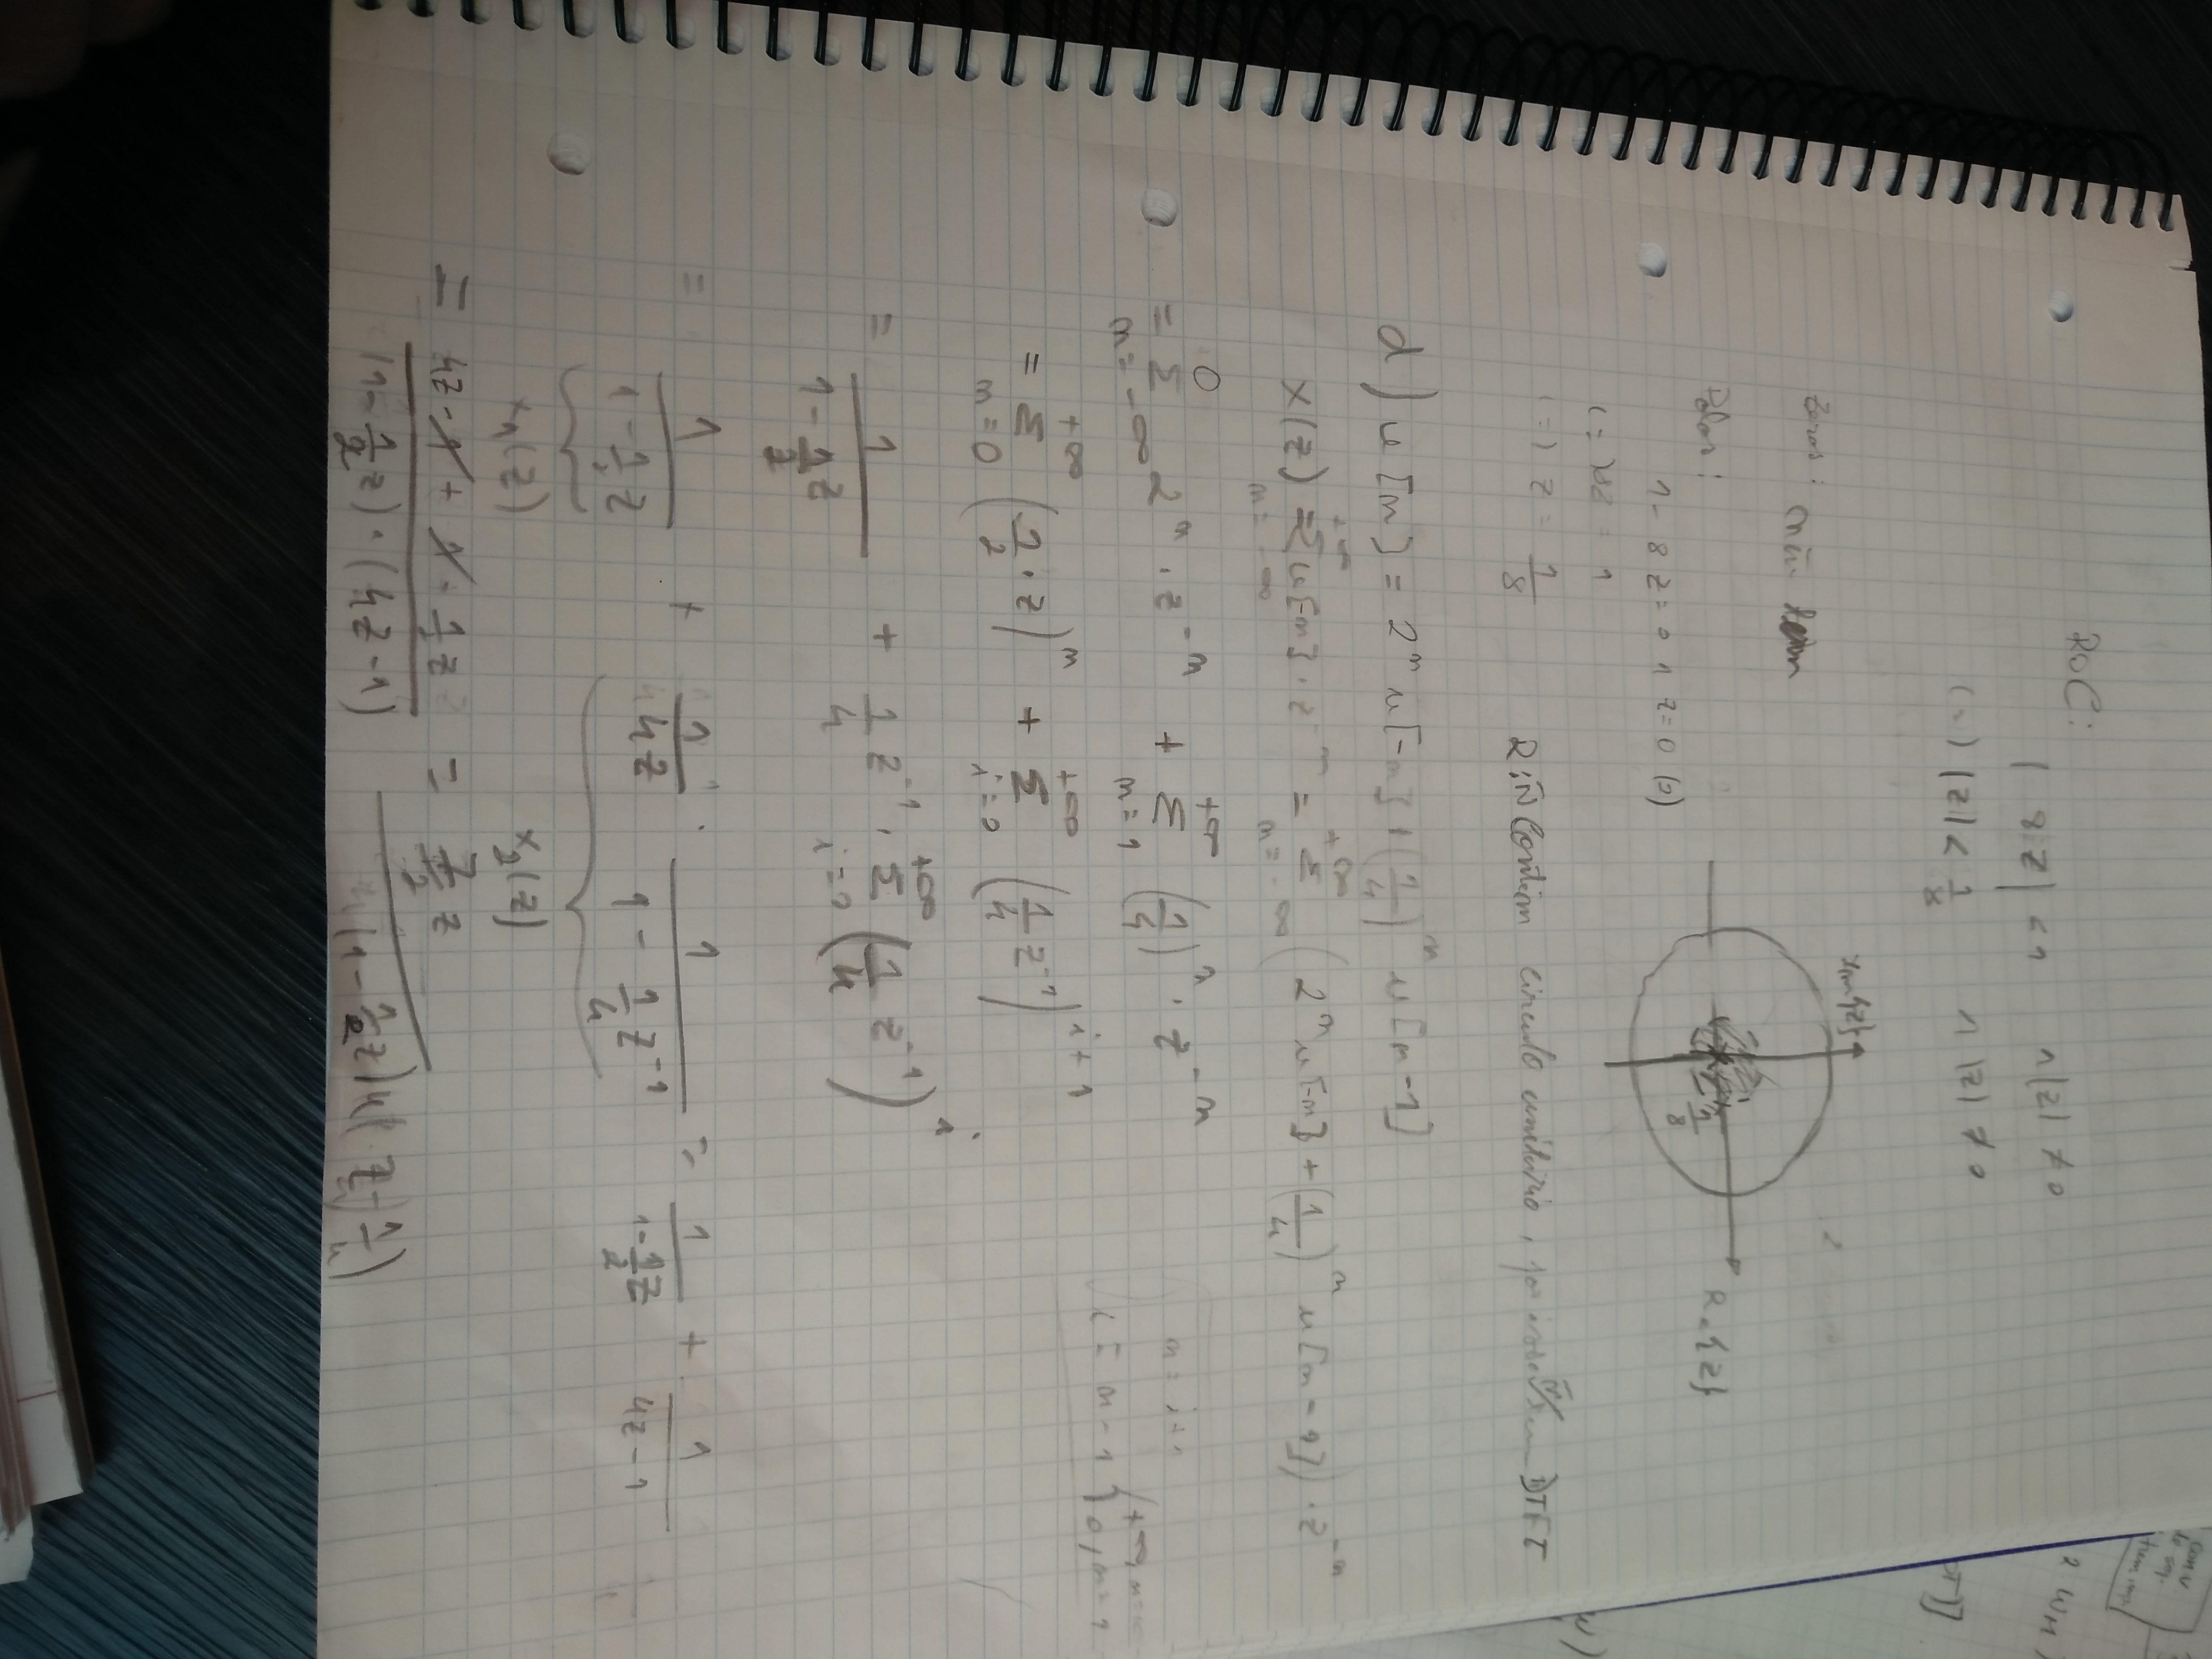 ROC: |8z| < 1 ∩ |z| ≠ 0
(=) |z| < 1/8 ∩ |z| ≠ 0
Zeros: não
Polos:
1 - 8z = 0 ∧ z = 0 (0)
(=) 8z = 1
(=) z = 1/8
Im{z}
1/8
Re{z}
R: Ñ Contém círculo unitário, DTFT
d) x[n] = 2^n u[-n] + (1/4)^n u[n-1]
X(z) = Σ_{n=-∞}^{+∞} x[n] · z^{-n} = Σ_{n=-∞}^{+∞} (2^n u[-n] + (1/4)^n u[n-1]) · z^{-n}
= Σ_{n=-∞}^{0} 2^n · z^{-n} + Σ_{n=1}^{+∞} (1/4)^n · z^{-n}
n = i+1
i = n-1 { +∞, n=∞
0, n=1
= Σ_{n=0}^{+∞} (1/2 · z)^n + Σ_{i=0}^{+∞} (1/4 z^{-1})^{i+1}
= 1/(1 - 1/2 z) + 1/4 z^{-1} · Σ_{i=0}^{+∞} (1/4 z^{-1})^i
= 1/(1 - 1/2 z) + 1/(4z) · 1/(1 - 1/4 z^{-1}) = 1/(1 - 1/2 z) + 1/(4z-1)
X1(z) X2(z)
= (4z - 1 + 1 - 1/2 z)/((1 - 1/2 z) · (4z-1)) = (7/2 z)/(4(1 - 1/2 z)